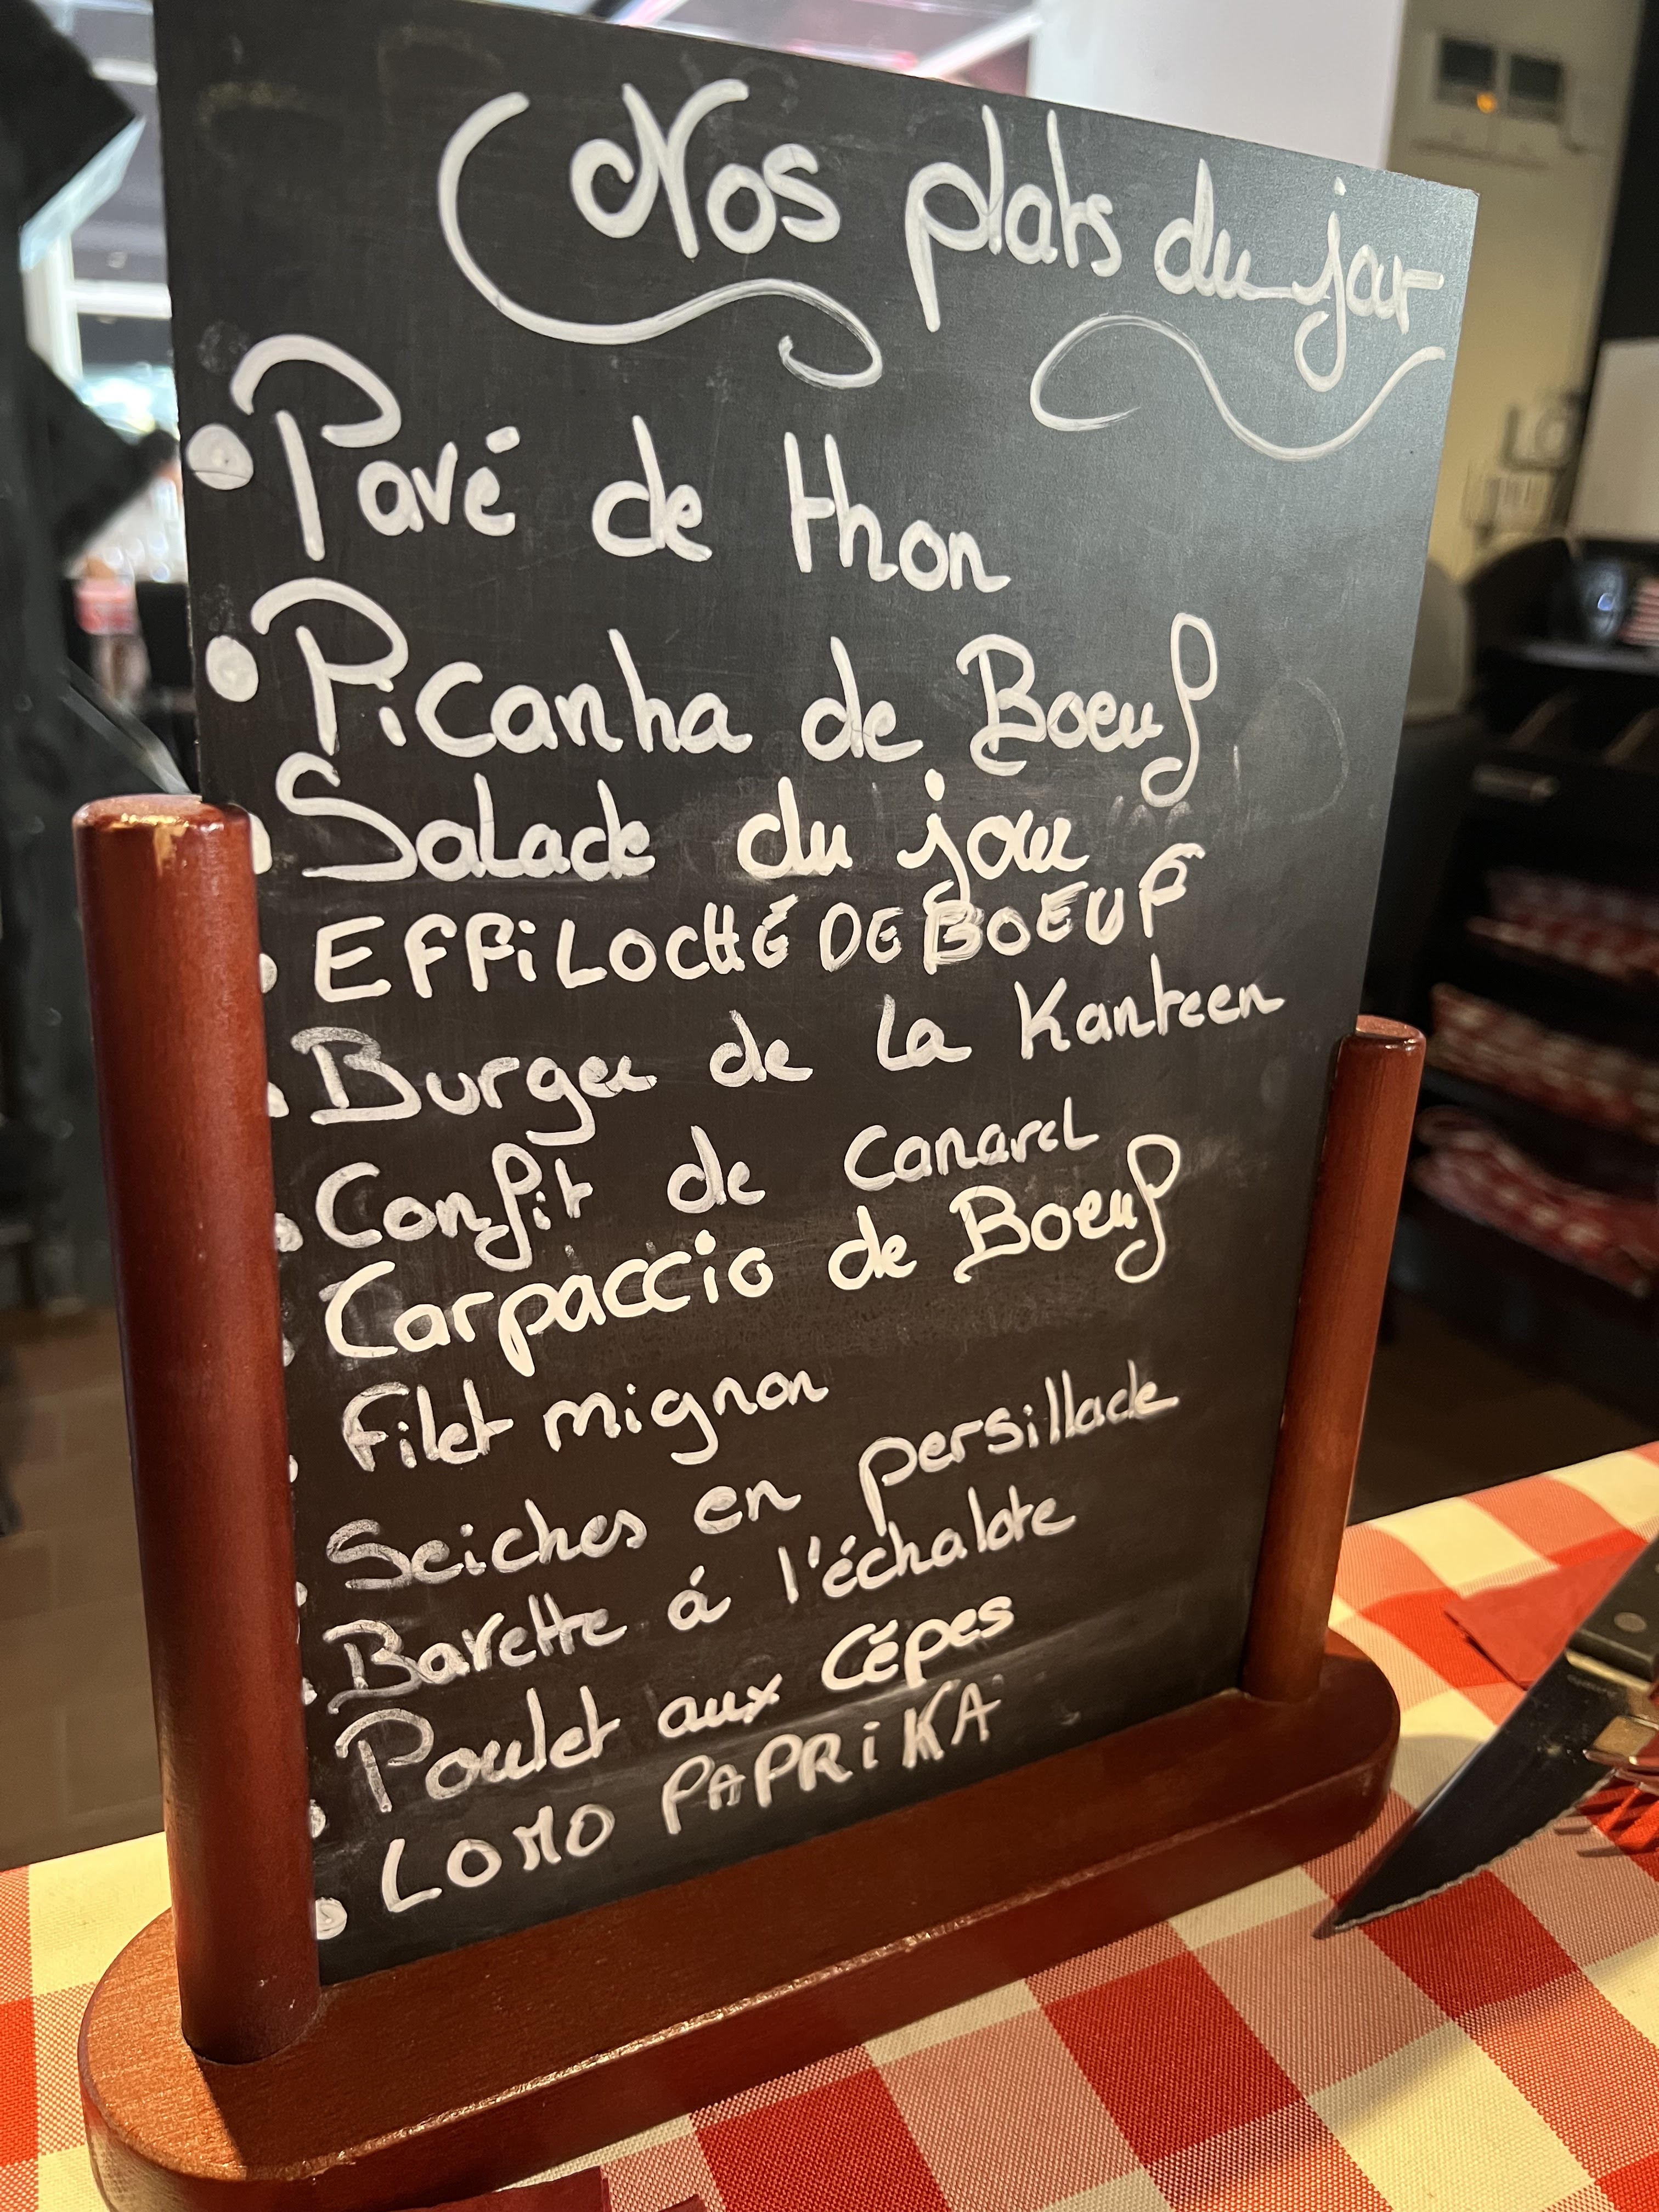 Nos plats du jour
• Pavé de thon
• Picanha de Boeuf
• Salade du jour
• EFFiLOCHÉ DE BOEUF
• Burger de la Kanteen
• Confit de canard
• Carpaccio de Boeuf
• Filet mignon
• Seiches en persillade
• Bavette á l'échalote
• Poulet aux Cépes
• LOMO PAPRiKA